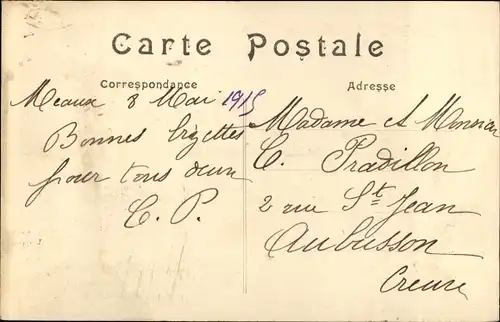 Carte Postale
Correspondance
Adresse
Meaux 8 Mai 1915
Bonnes
pour tous deux
C. P.
Madame et Monsieur
C. Pradillon
2 rue St Jean
Aubusson
Creuse